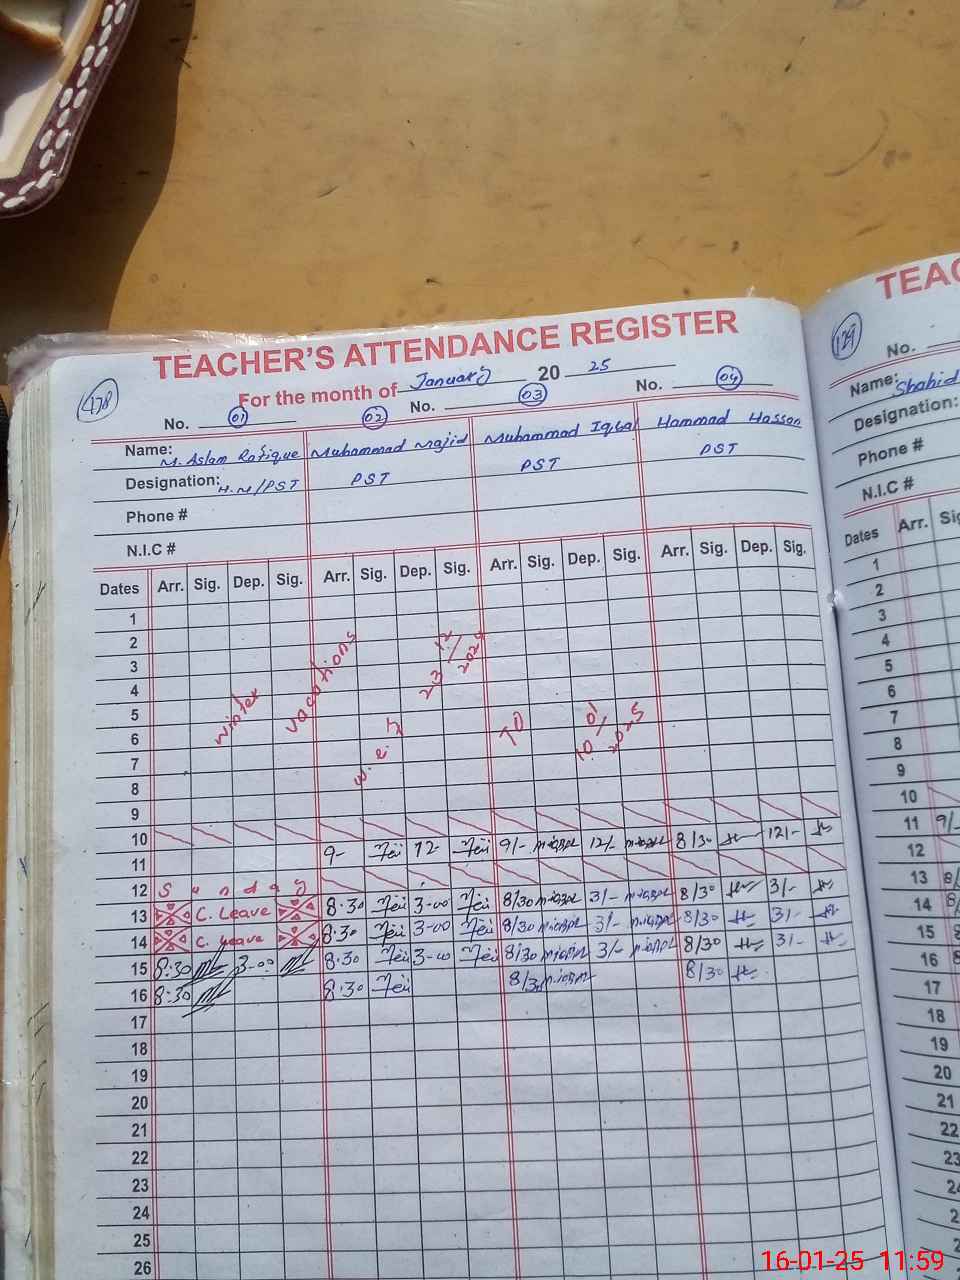 TEACHER'S ATTENDANCE REGISTER
478
For the month of January 20 25
No. 01 02 No. 03 No. 04
Name: M. Aslam Rafique Muhammad Majid Muhammad Iqbal Hammad Hassan
Designation: H.M/PST PST PST PST
Phone #
N.I.C #
Dates Arr. Sig. Dep. Sig. Arr. Sig. Dep. Sig. Arr. Sig. Dep. Sig. Arr. Sig. Dep. Sig.
1
2
3
4
5
6
7
8
9
winter vacations w.e.f 23/12/2024 TO 10/01/2025
10
11 9- 12- 9/- 12/- 8/30 12/-
12 Sunday
13 C. Leave 8:30 3-00 8/30 3/- 8/30 3/-
14 C. Leave 8:30 3-00 8/30 3/- 8/30 3/-
15 8:30 3-00 8:30 3-00 8/30 3/- 8/30 3/-
16 8:30 8:30 8/30 8/30
17
18
19
20
21
22
23
24
25
26
TEAC
129
No.
Name: Shahid
Designation:
Phone #
N.I.C #
Dates Arr. Sig
1
2
3
4
5
6
7
8
9
10
11 9/-
12
13 8/
14 8/
15 8
16 8
17
18
19
20
21
22
23
24
16-01-25 11:59